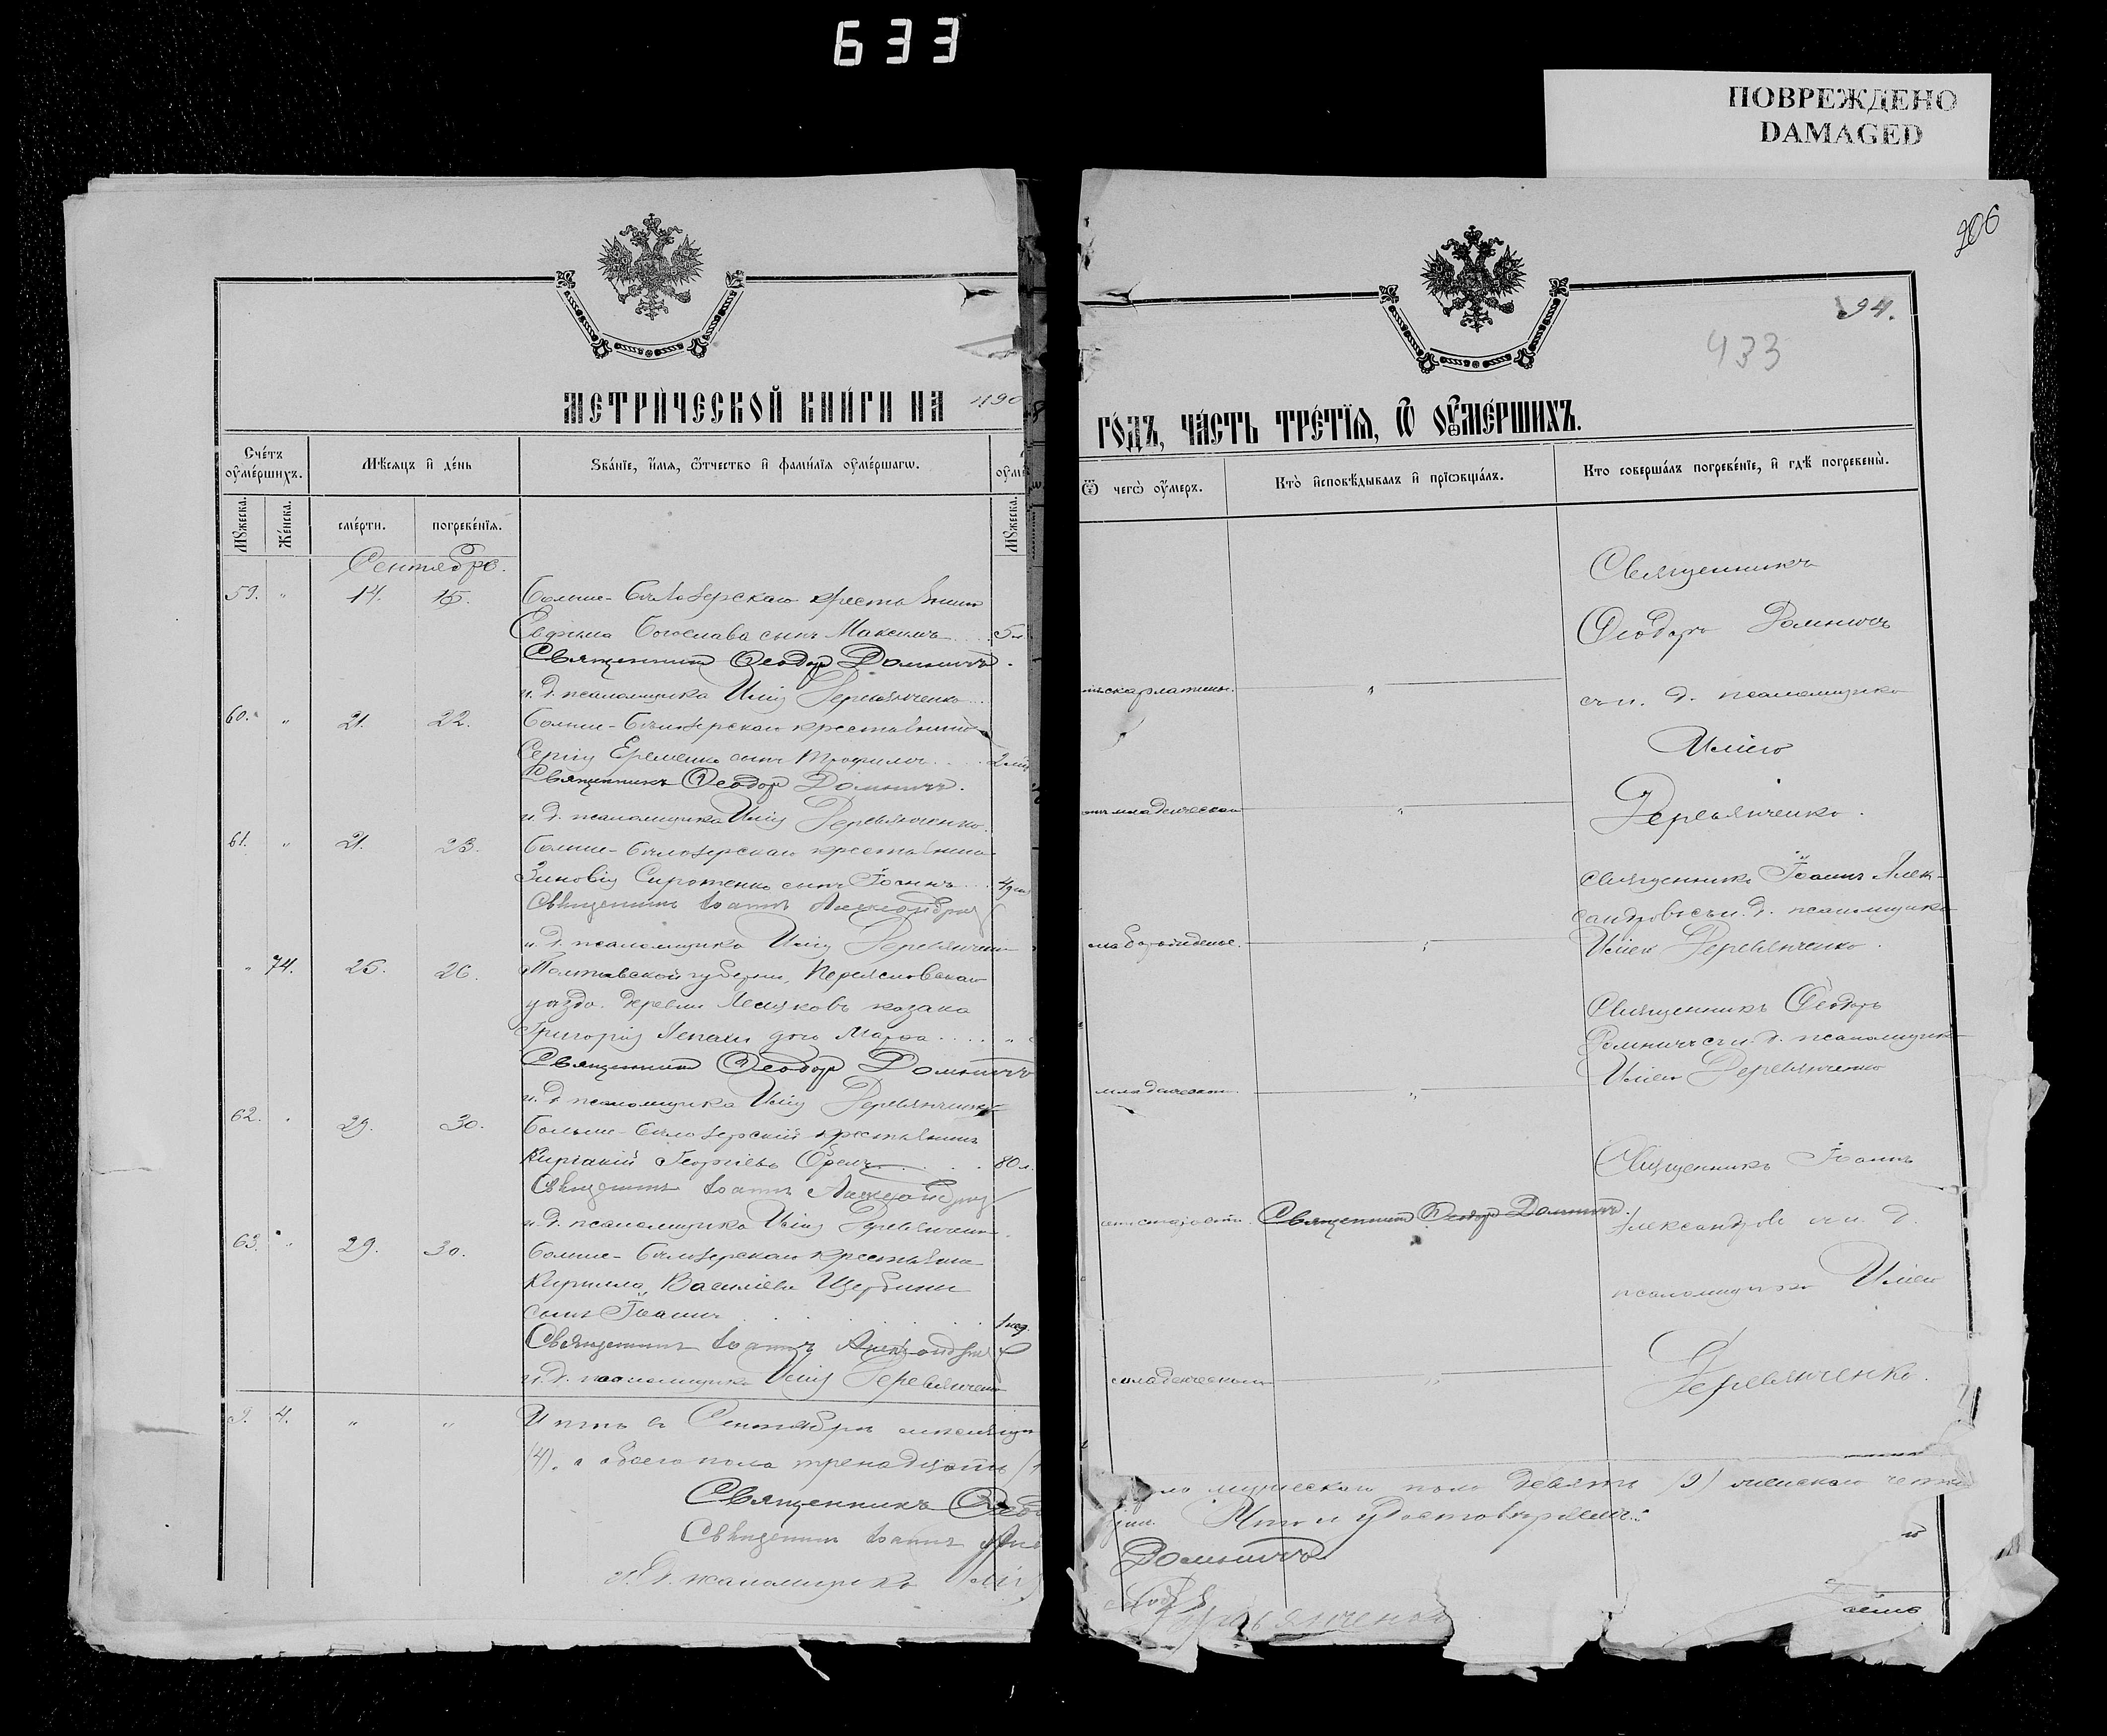 633
ПОВРЕЖДЕНО
DAMAGED
206
94.
433
МЕТРИ́ЧЕСКОЙ КНИ́ГИ НА 190
ГО́ДЪ, ЧА́СТЬ ТРЕ́ТІѦ, Ѿ ОУМЕ́РШИХЪ.
Счётъ оумершихъ.
Мѣсяцъ и день
Званіе, имя, отчество и фамилія оумершагѡ.
Мꙋжеска.
Женска.
смерти.
погребенія.
Мꙋжеска.
Ѿ чегѡ оумеръ.
Кто исповѣдывалъ и пріѡбщалъ.
Кто совершалъ погребеніе, и гдѣ погребены.
Сентябрь.
59. " 14. 15. Больше-Бѣлозерскаго крестьянина
Евфима Богослава сынъ Максимъ 5 л
Священникъ Ѳеодоръ Домничъ.
и. д. псаломщика Илія Деревянченко
отъ скарлатины.
Священникъ
Ѳеодоръ Домничъ
съ и. д. псаломщика
Иліею
Деревянченко.
60. " 21. 22. Больше-Бѣлозерскаго крестьянина
Сергія Еременко сынъ Трофимъ 2 мѣс
Священникъ Ѳеодоръ Домничъ.
и. д. псаломщика Илія Деревянченко.
отъ младенческой
61. " 21. 23. Больше-Бѣлозерскаго крестьянина
Зиновія Сиротенко сынъ Іоаннъ 4 дня
Священникъ Іоаннъ Александровъ
и. д. псаломщика Илія Деревянченко
Священникъ Іоаннъ Алек-
сандровъ съ и. д. псаломщика
Иліею Деревянченко.
" 74. 25. 26. Полтавской губерніи, Переяславскаго
уѣзда. деревни Лецковъ козака
Григорія Лепахи дочь Марѳа "
Священникъ Ѳеодоръ Домничъ
и. д. псаломщика Илія Деревянченко
младенческой.
Священникъ Ѳеодоръ
Домничъ съ и. д. псаломщика
Иліею Деревянченко
62. " 29. 30. Больше-Бѣлозерскій крестьянинъ
Киріакій Георгіевъ Орелъ 80 л.
Священникъ Іоаннъ Александровъ
и. д. псаломщика Илія Деревянченко.
отъ старости. Священникъ Ѳеодоръ Домничъ.
Священникъ Іоаннъ
Александровъ съ и. д.
псаломщика Иліею
Деревянченко.
63. " 29. 30. Больше-Бѣлозерскаго крестьянина
Кирилла Василіева Щербины
сынъ Іоаннъ 1 нед.
Священникъ Іоаннъ Александровъ
и. д. псаломщика Илія Деревянченко
младенческой
9. 4. " " Итого въ Сентябрѣ мѣсяцѣ
ло мужескаго пола девять (9) женскаго четы
(4). а обоего пола тринадцать
Что и удостовѣряемъ:
Священникъ Ѳеодо
Домничъ
Священникъ Іоаннъ
и. д. псаломщика Илія
Деревянченко